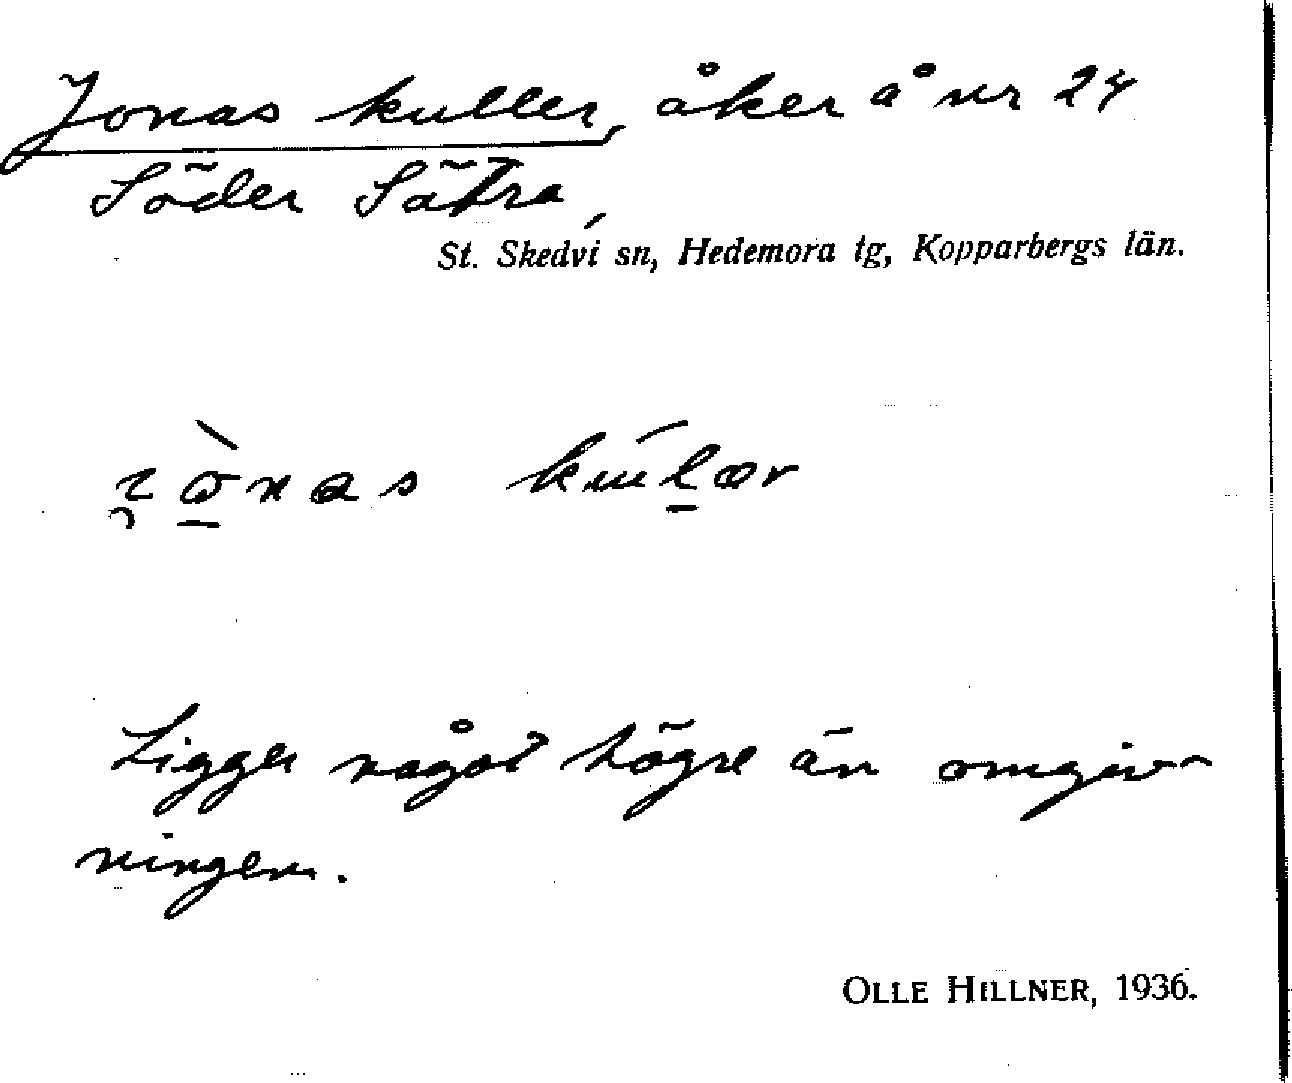 Jonas kuller, åker å nr 24
Söder Sätra,
St. Skedvi sn, Hedemora tg, Kopparbergs län.
Ligger något högre än omgiv-
ningen.
OLLE HILLNER, 1936.